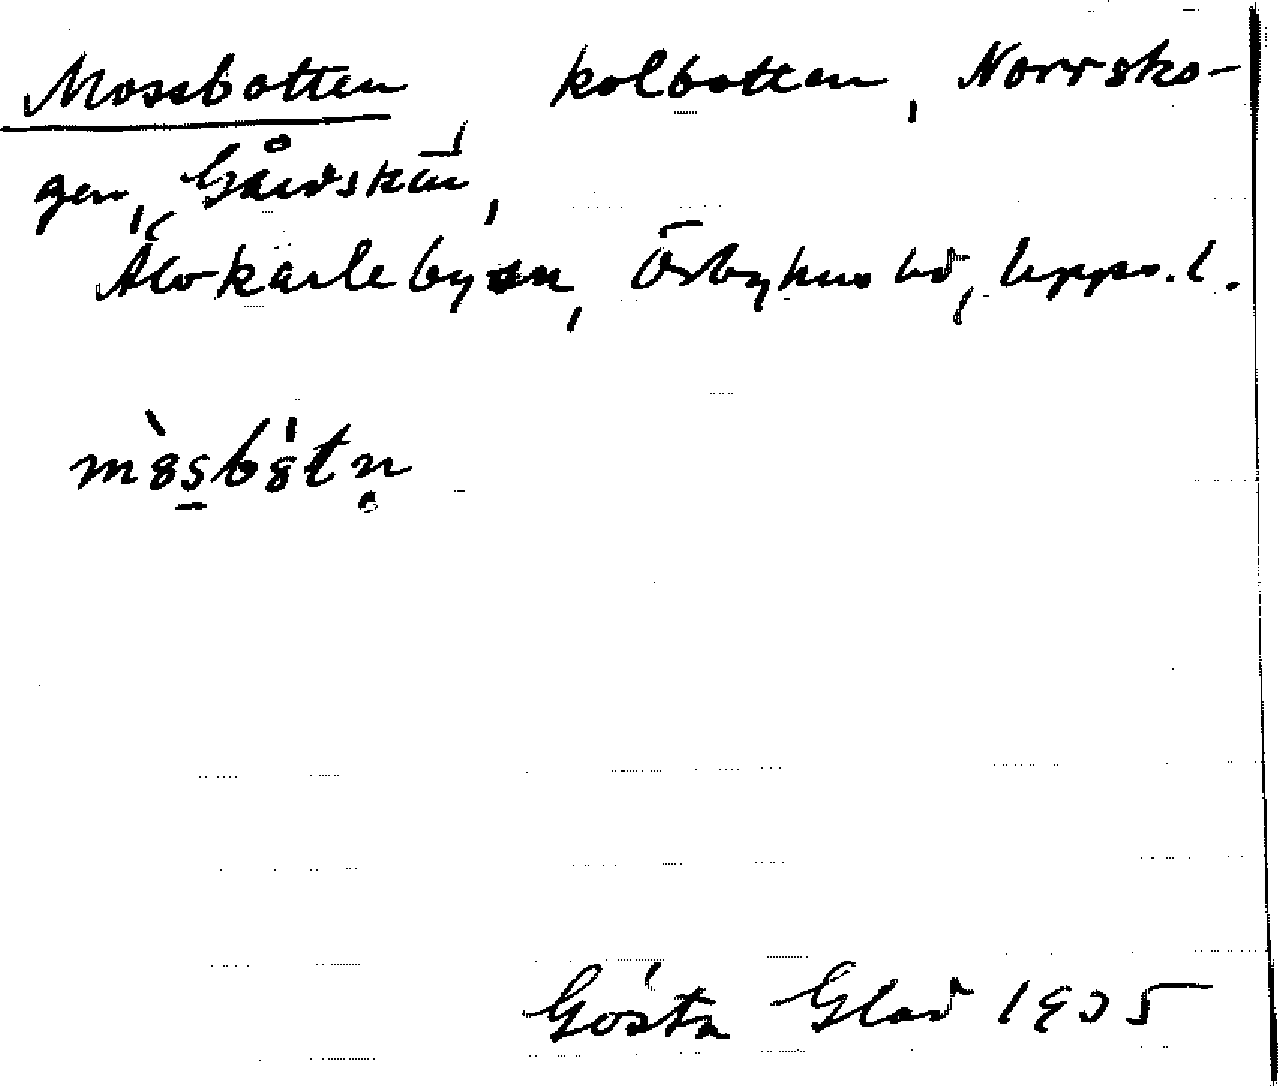 Mossbotten, kolbotten, Norrsko-
gen, Gårdskär,
Älvkarleby sn, Örbyhus hd, Upps. l.
mòsbòtn̥
Gösta Glad 1935